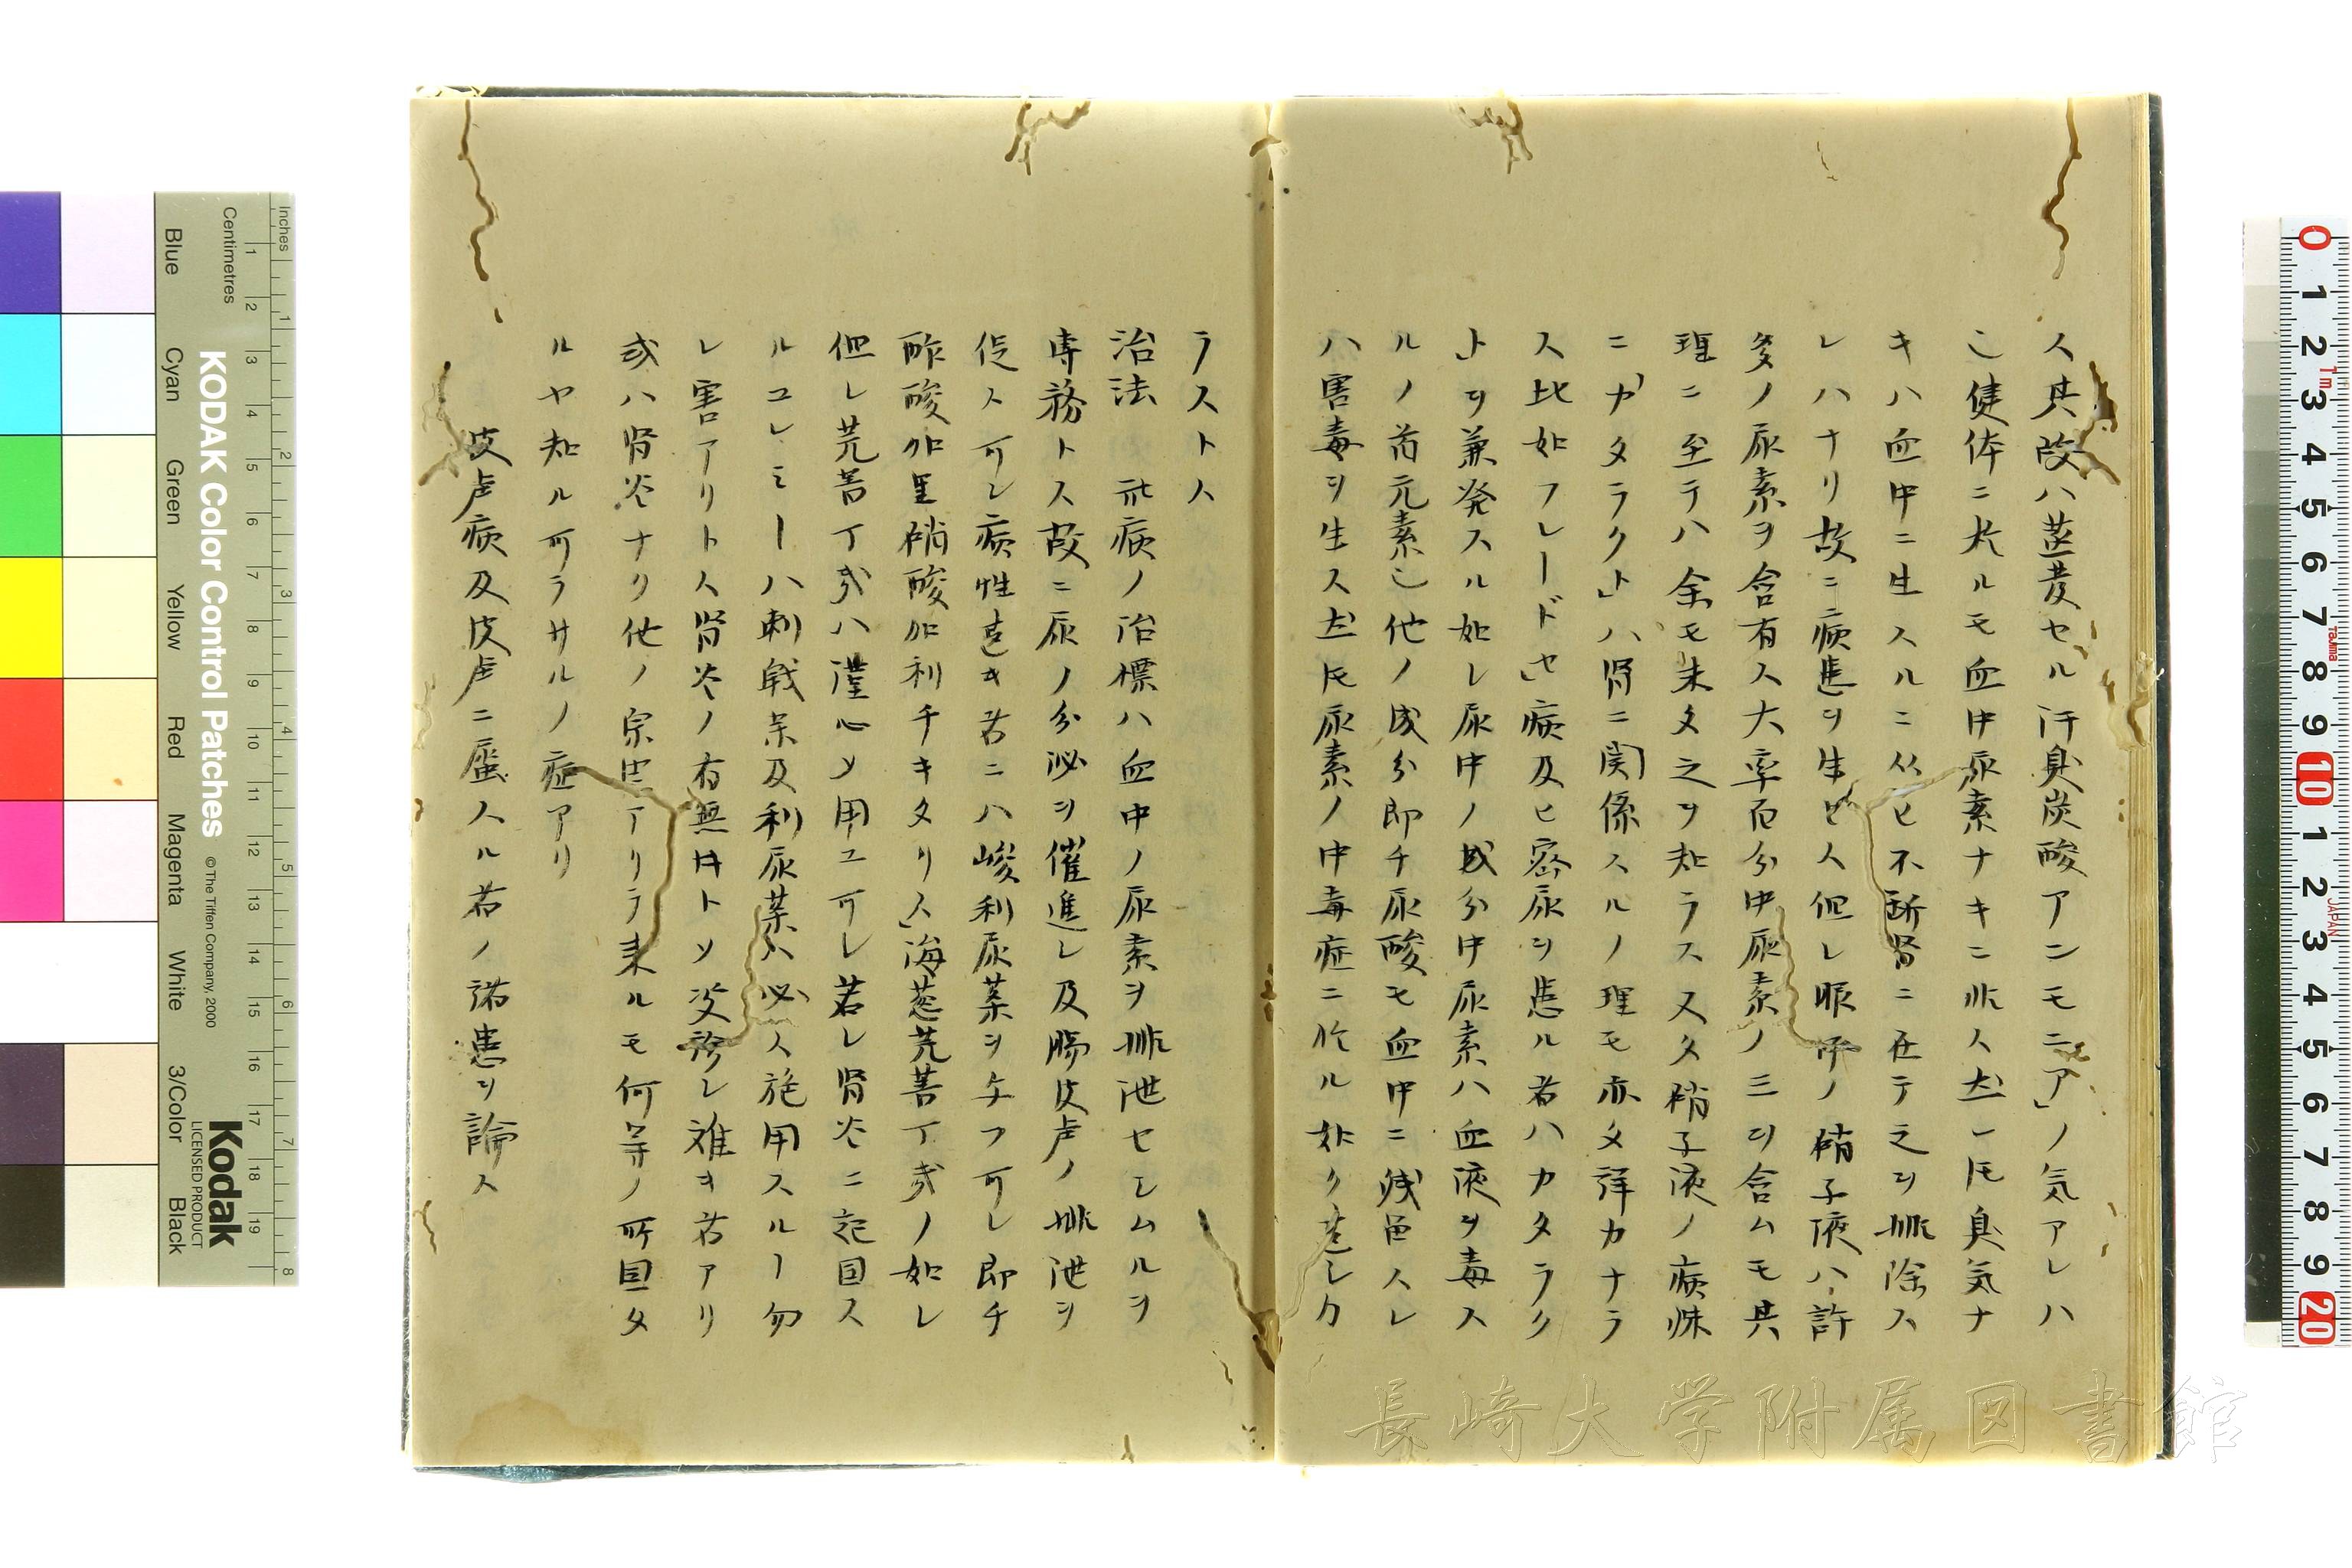 ス其故ハ蒸発セル汗臭炭酸アンモニア」ノ気アレハ
也健体ニ於ルモ血中尿素ナキニ非ス𪜈一臭気ナ
キハ血中ニ生スルニ从ヒ不断腎ニ在テ之ヲ排除ス
レハナリ故ニ病患ヲ生セス但レ眼中ノ硝子液ハ許
多ノ尿素ヲ含有ス大率百分中尿素ノ三ヲ含ムモ其
理ニ至テハ余モ未タ之ヲ知ラス又タ硝子液ノ病
ニ「カタラクト」ハ腎ニ関係スルノ理モ亦タ詳カナラ
ス比如フレードセ」病及ヒ密尿ヲ患ル者ハカタラク
ト」ヲ兼発スル如レ尿中ノ成分中尿素ハ血液ヲ毒ス
ルノ首元素也他ノ成分即チ尿酸モ血中ニ残留スレ
ハ害毒ヲ生ス𪜈尿素ノ中毒症ニ於ル如ク甚シカ
ラストス
治法 此病ノ治標ハ血中ノ尿素ヲ排泄セレムルヲ
専務トス故ニ尿ノ分泌ヲ催進レ及腸皮膚ノ排泄ヲ
促ス可レ病性遠キ者ニハ峻利尿薬ヲ与フ可レ即チ
酢酸加里硝酸加利チキタリス」海葱芫菩丁幾ノ如レ
但レ芫菩丁幾ハ謹心ソ用ユ可レ若レ腎炎ニ起因ス
ルユレミーハ刺戟薬及利尿薬ハ必ス施用スルー勿
レ害アリトス腎炎ノ有無牛トソ决診レ難キ者アリ
或ハ腎炎ナク他ノ宗患アリテ来ルモ何等ノ所因タ
ルヤ知ル可ラサルノ症アリ
皮膚病及皮膚ニ蜃スル者ノ諸患ヲ論ス
長崎大学附属図書館
KODAK Color Control Patches
©The Tiffen Company, 2000
Kodak
LICENSED PRODUCT
Inches
Centimetres
Blue
Cyan
Green
Yellow
Red
Magenta
White
3/Color
Black